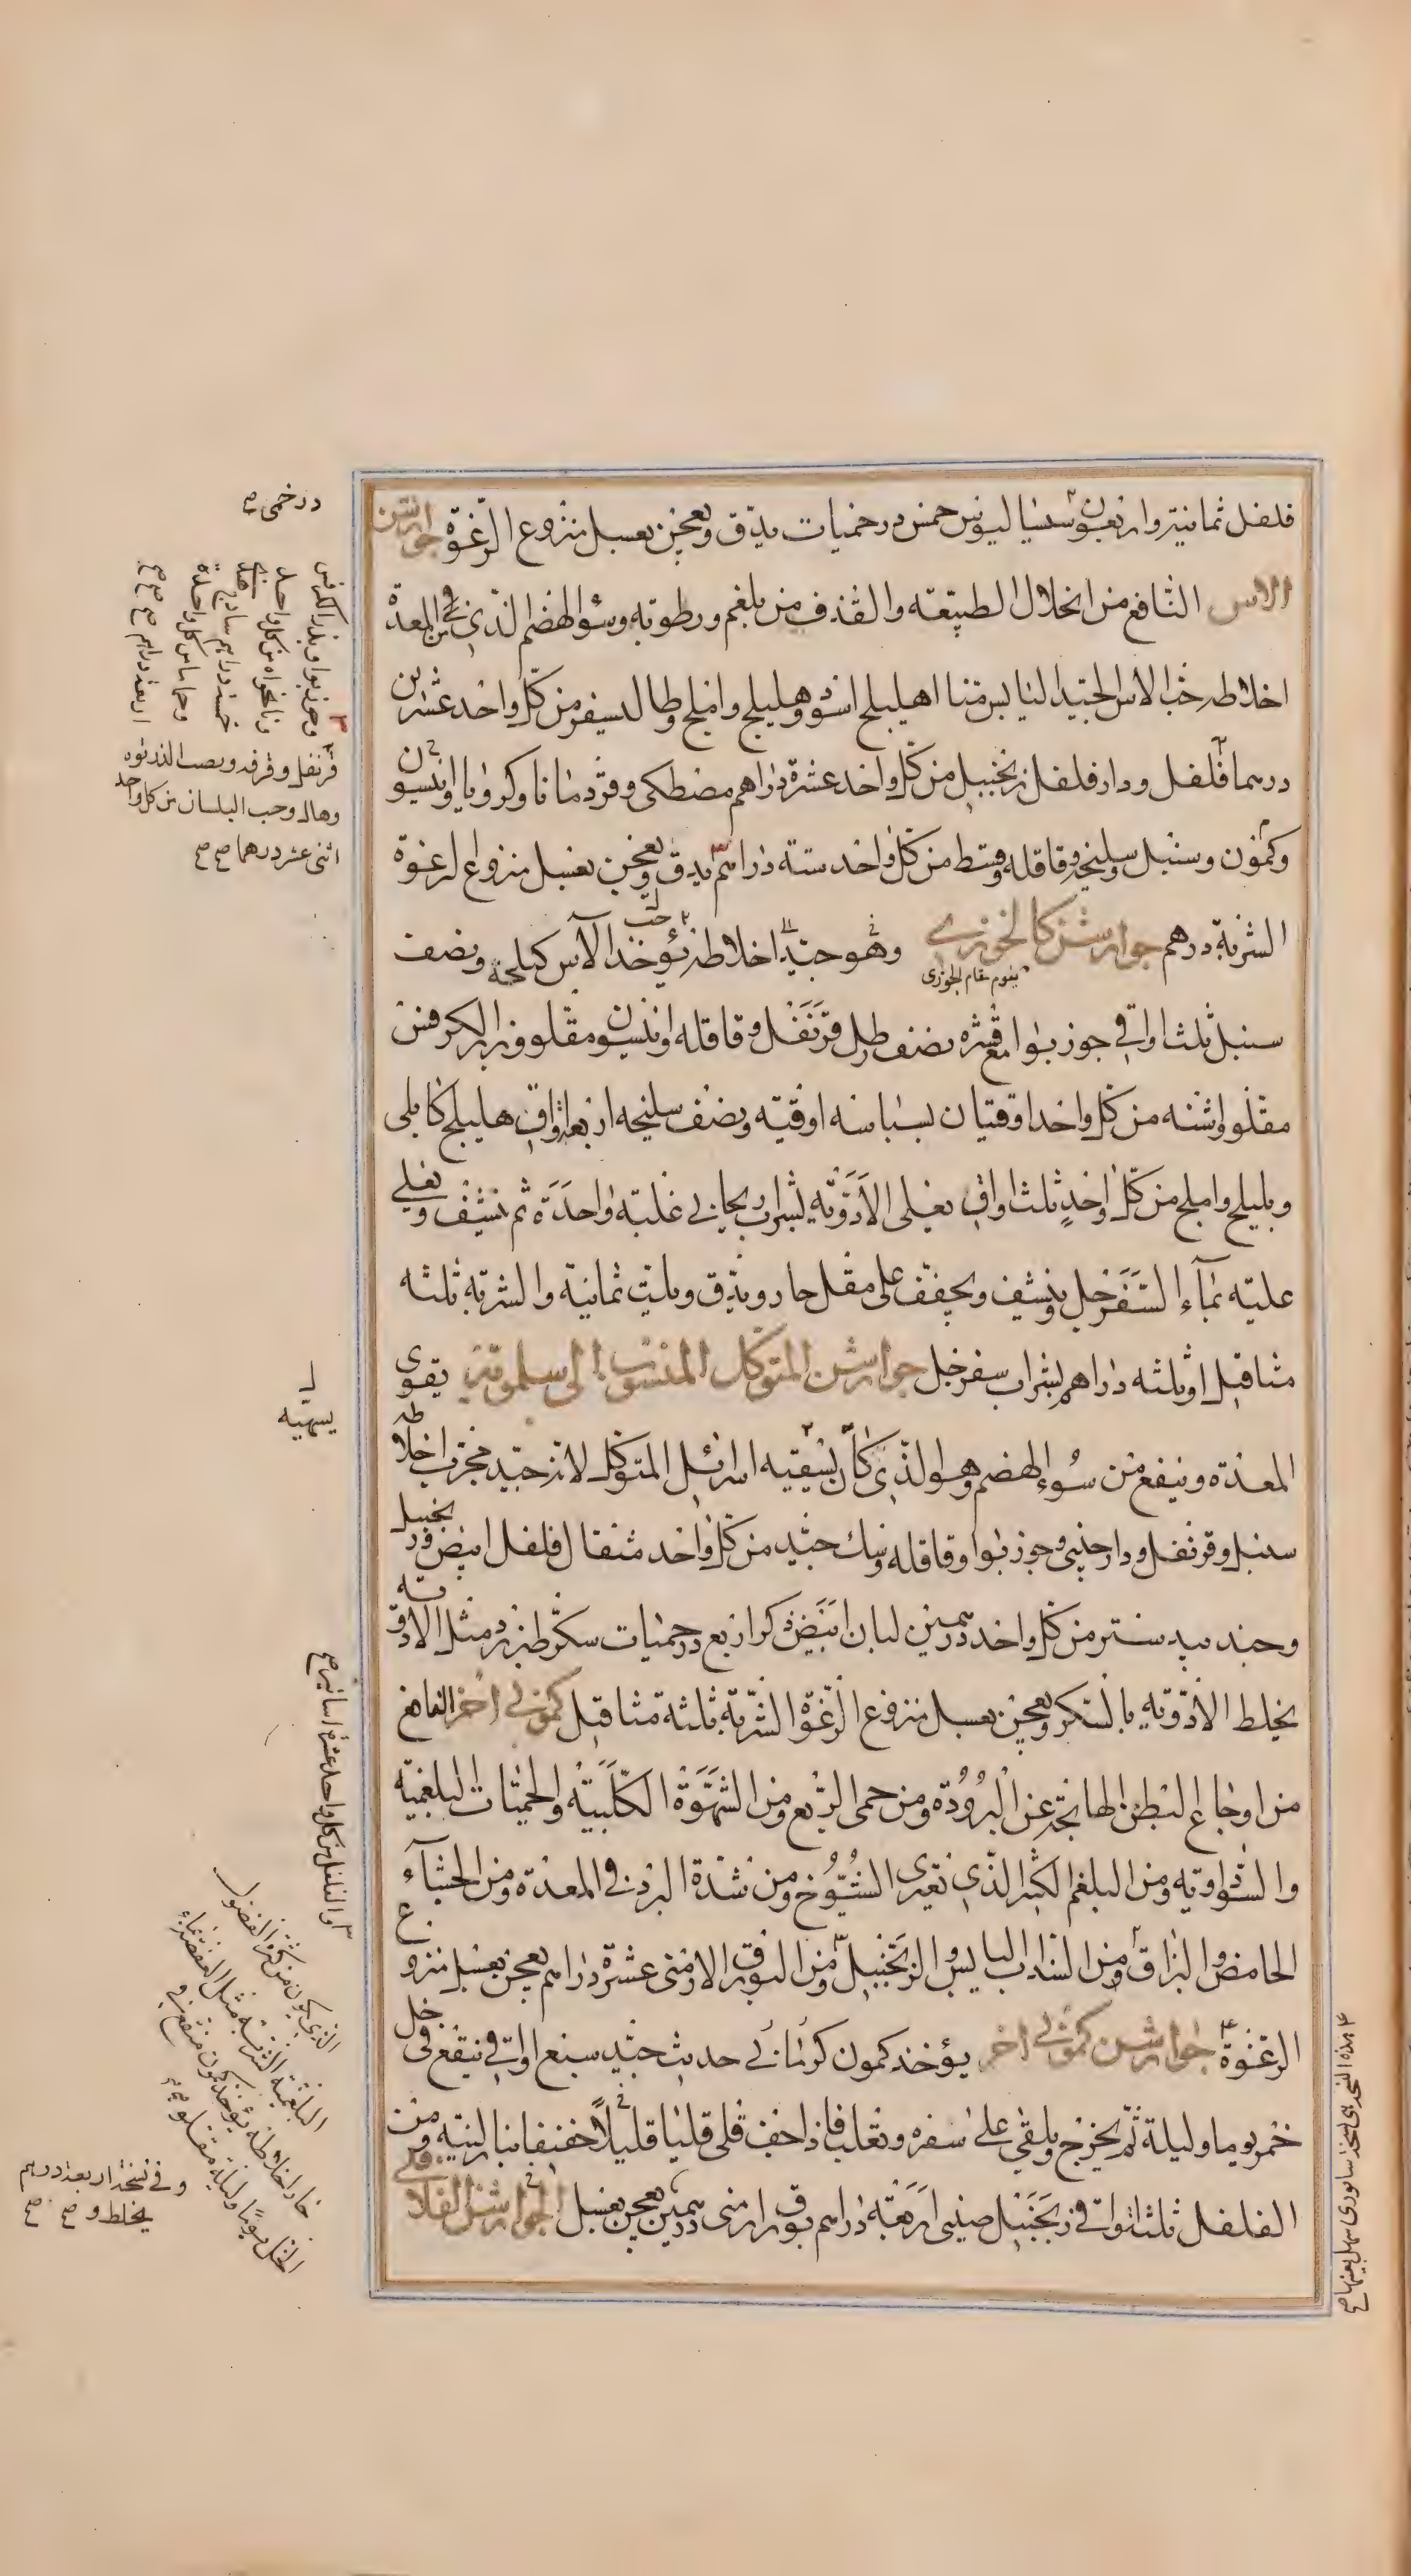 فلفل ثمانية واربعون سساليوس خمس درخميات يدق ويعجن بعسل منزوع الرغوة جوارشن
الاس النافع من انحلال الطبيعة والقذف من بلغم ورطوبة وسوء الهضم الذي في المعدة
اخلاطه حب الاس الجيد اليابس منا اهليلج اسود وهليلج واملج وطاليسفر من كل واحد عشرين
درهما فلفل ودار فلفل زنجبيل من كل واحد عشرة دراهم مصطكى وقردمانا وكرويا وانيسون
وكمون وسنبل وسليخه وقاقله وقسط من كل واحد ستة دراهم يدق ويعجن بعسل منزوع الرغوة
الشربة درهم جوارشن كالخوزي وهو جيد اخلاطه يؤخذ حب الآس كيلجة ونصف
سنبل ثلث اواقي جوز بوا مع قشره نصف رطل قرنفل وقاقله وانيسون مقلو وبزر الكرفس
مقلو واشنه من كل واحد اوقيتان بسباسه اوقية ونصف سليخه اربع اواق هليلج كابلى
وبليلج واملج من كل واحد ثلث اواق يغلى الادوية بشراب ريحاني غلية واحدة ثم ينشف ويغلي
عليه بماء السفرجل وينشف ويجفف على مقل حار ويدق ويلت ثمانية والشربة ثلثه
مثاقيل او ثلثه دراهم بشراب سفرجل جوارشن المتوكل المنسوب الى سلمويه يقوى
المعدة وينفع من سوء الهضم وهو الذي كان يسقيه اسرائيل المتوكل لانه جيد مجرب اخلاطه
سنبل وقرنفل ودارچيني وجوز بوا وقاقله وسك جيد من كل واحد مثقال فلفل ابيض وزنجبيل
وجند بيد ستر من كل واحد درهمين لبان ابيض ذكر اربع درخميات سكر طبرزد مثل الادوية
يخلط الادوية بالسكر ويعجن بعسل منزوع الرغوة الشربة ثلثة مثاقيل كموني اخر النافع
من اوجاع البطن الهائجة عن البرودة ومن حمى الربع ومن الشهوة الكلبية والحميات البلغمية
والسوداوية ومن البلغم الكثير الذي يعتري الشيوخ ومن شدة البرد في المعدة ومن الجشاء
الحامض والبزاق ومن السذاب اليابس والزنجبيل ومن البورق الارمنى عشرة دراهم يعجن بعسل منزوع
الرغوة جوارشن كموني اخر يؤخذ كمون كرماني حديث جيد سبع اواقي ينقع في خل
خمر يوما وليلة ثم يخرج ويلقي على سفره ويقلب فاذا جف قلى قليا قليلا خفيفا بنار لينة ومن
الفلفل ثلث اواقي زنجبيل صيني اربعة دراهم بورق ارمنى درهمين يعجن بعسل الجوارشن الفلافلي
درخمى
وجوز بوا وبزر الكرفس
ونانخواه من كل واحد
خمسة دراهم ساذج هندي
وحماما من كل واحدة
اربعة دراهم
قرنفل وقرفه
وهال وحب البلسان من كل واحد
اثنى عشر درهما
يقوم مقام الجوزى
يسهيه
والفلفل من كل واحد عشرة اساتير
الذي يكون من كثرة الفضول
البلغمية الشربة مثل العفصة بماء
حار اخلاطه يؤخذ كمون منقع في
الخل يوما وليلة مقلو
وفى نسخة اربعة دراهم
يخلط و